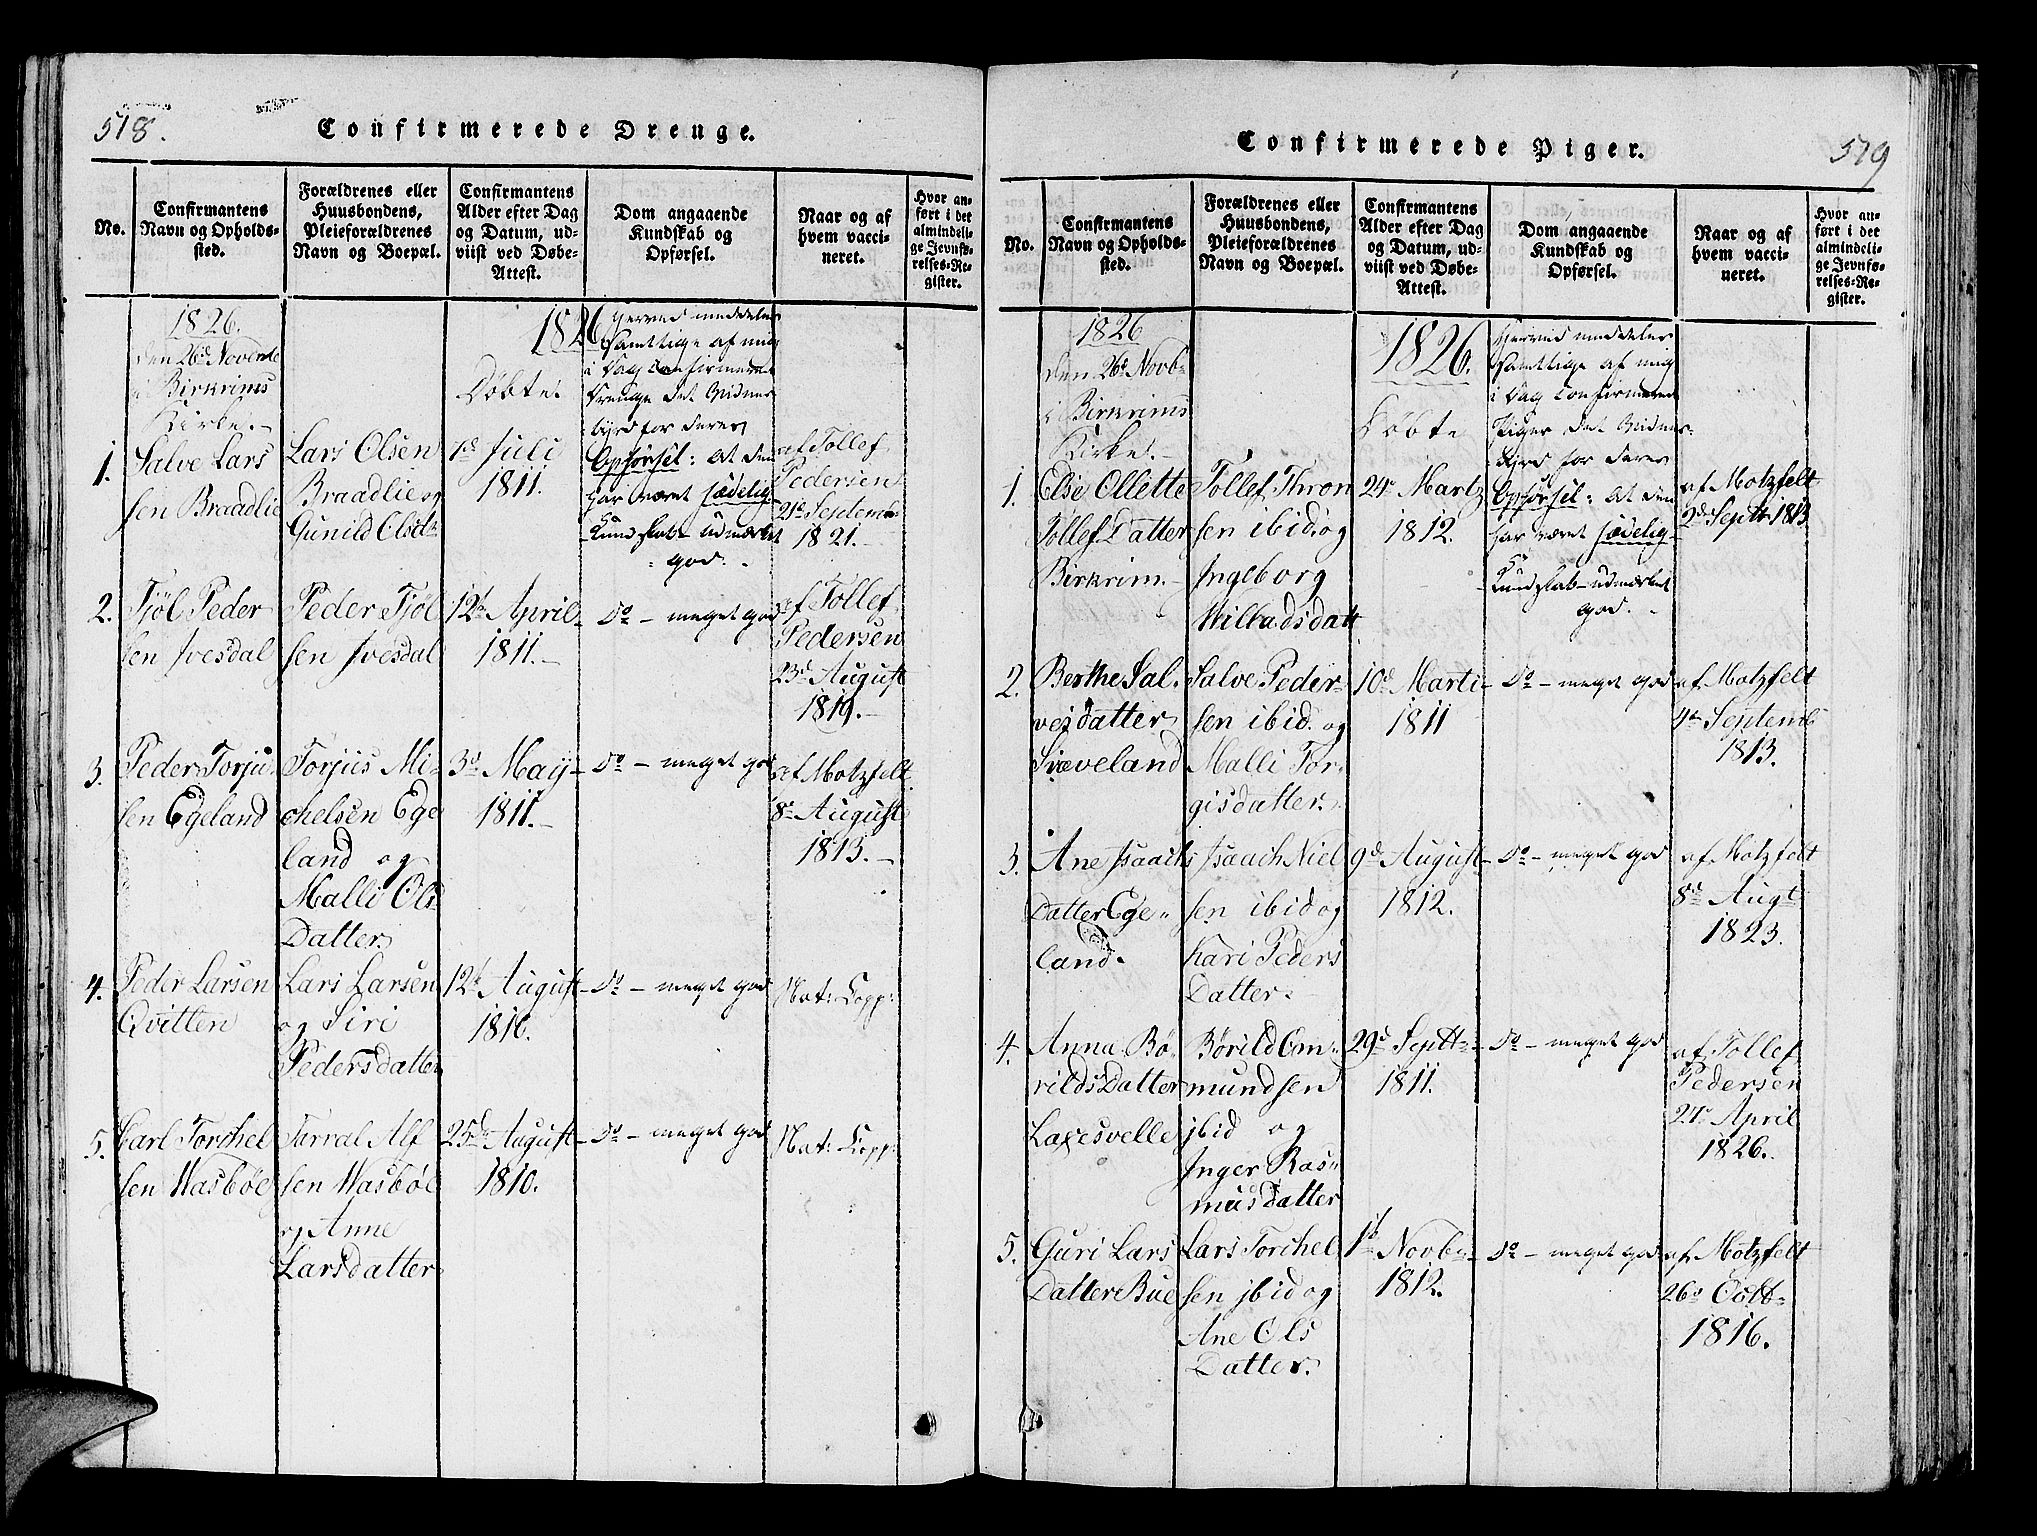 518.
Confirmerede Drenge.
No.
Confirmantens
Navn og Opholds-
sted.
Forældrenes eller
Huusbondens,
Pleieforældrenes
Navn og Boepæl.
Confirmantens
Alder efter Dag
og Datum, ud-
viist ved Døbe-
Attest.
Dom angaaende
Kundskab og
Opførsel.
Naar og af
hvem vacci-
neret.
Hvor an-
ført i det
almindeli-
ge Jevnfø-
relses-Re-
gister.
1826.
den 26d Novemb
i Birkrims
Kirke.-
1826
Døbte.
Herved meddeles
samtlige af mig
i Dag Confirmerede
Drenge det Vidnes-
byrd for deres
Opførsel: at den
har været sædelig-
Kundskab- udmærket
god.-
1.
Salve Lars
sen Braadlie
Lars Olsen
Braadlie og
Gunild Olsdtr
1d Juli
1811.
af Tollef
Pedersen
21d Septemb
1821.-
2.
Tjøl Peder
sen Ivesdal
Peder Tjøl
sen Ivesdal
12te April-
1811.-
Do - meget god
af Tollef
Pedersen
23d August
1819.-
3.
Peder Torju
sen Egeland
Torjus Mi-
chelsen Ege
land og
Malli Ols
Datter.
3d May-
1811.-
Do - meget god
af Motzfelt
8de August
1813.-
4.
Peder Larsen
Qvitten
Lars Larsen
og Siri
Pedersdatter
12te August-
1810.
Do - meget god
Nat: Kopp:
5.
Karl Torchel
sen Wasbøe
Tarral Alf
sen Wasbøe
og Anne
Larsdatter
25de August-
1810.
Do - meget god
Nat: Kopp:
579
Confirmerede Piger.
No.
Confirmantens
Navn og Opholds-
sted.
Forældrenes eller
Huusbondens,
Pleieforældrenes
Navn og Boepæl.
Confirmantens
Alder efter Dag
og Datum, ud-
viist ved Døbe-
Attest.
Dom angaaende
Kundskab og
Opførsel.
Naar og af
hvem vacci-
neret.
Hvor an-
ført i det
almindeli-
ge Jevnfø-
relses-Re-
gister.
1826
den 26d Novb-
i Birkrims
Kirke.-
1826.
Døbte
Herved meddeles
samtlige af mig
i Dag Confirmerede
Piger det Vidnes-
byrd for deres
Opførsel: at den
har været sædelig-
Kundskab- udmærket
god.-
1.
Else Ollette
Tollef Datter
Birkrim.-
Tollef Thron
sen ibid. og
Ingeborg
Willadsdatt
24de Martz
1812.
af Motzfelt
2d Septr 1813
2.
Berthe Sal-
vesdatter
Svæveland
Salve Peder-
sen ibid. og
Malli Tor-
gisdatter.
10d Marti-
1811
Do - meget god
af Motzfelt
4de Septemb
1813.
3.
Ane Isaachs
Datter Ege-
land.
Isaach Niel
sen ibid og
Kari Peders
Datter.
9d August-
1812.
Do - meget god
af Motzfelt
8de Augt
1823.
4.
Anna Bø-
rilds Datter
Laxesvelle
Børild Om-
mundsen
jbid og
Inger Ras-
musdatter
29d Septr-
1811.
Do - meget god
af Tollef
Pedersen
24de April
1826.
5.
Guri Lars
Datter Bue
Lars Torchel
sen jbid og
Ane Ols
Datter.
1d Novb-
1812.
Do - meget god
af Motzfelt
26de Octb-
1816.